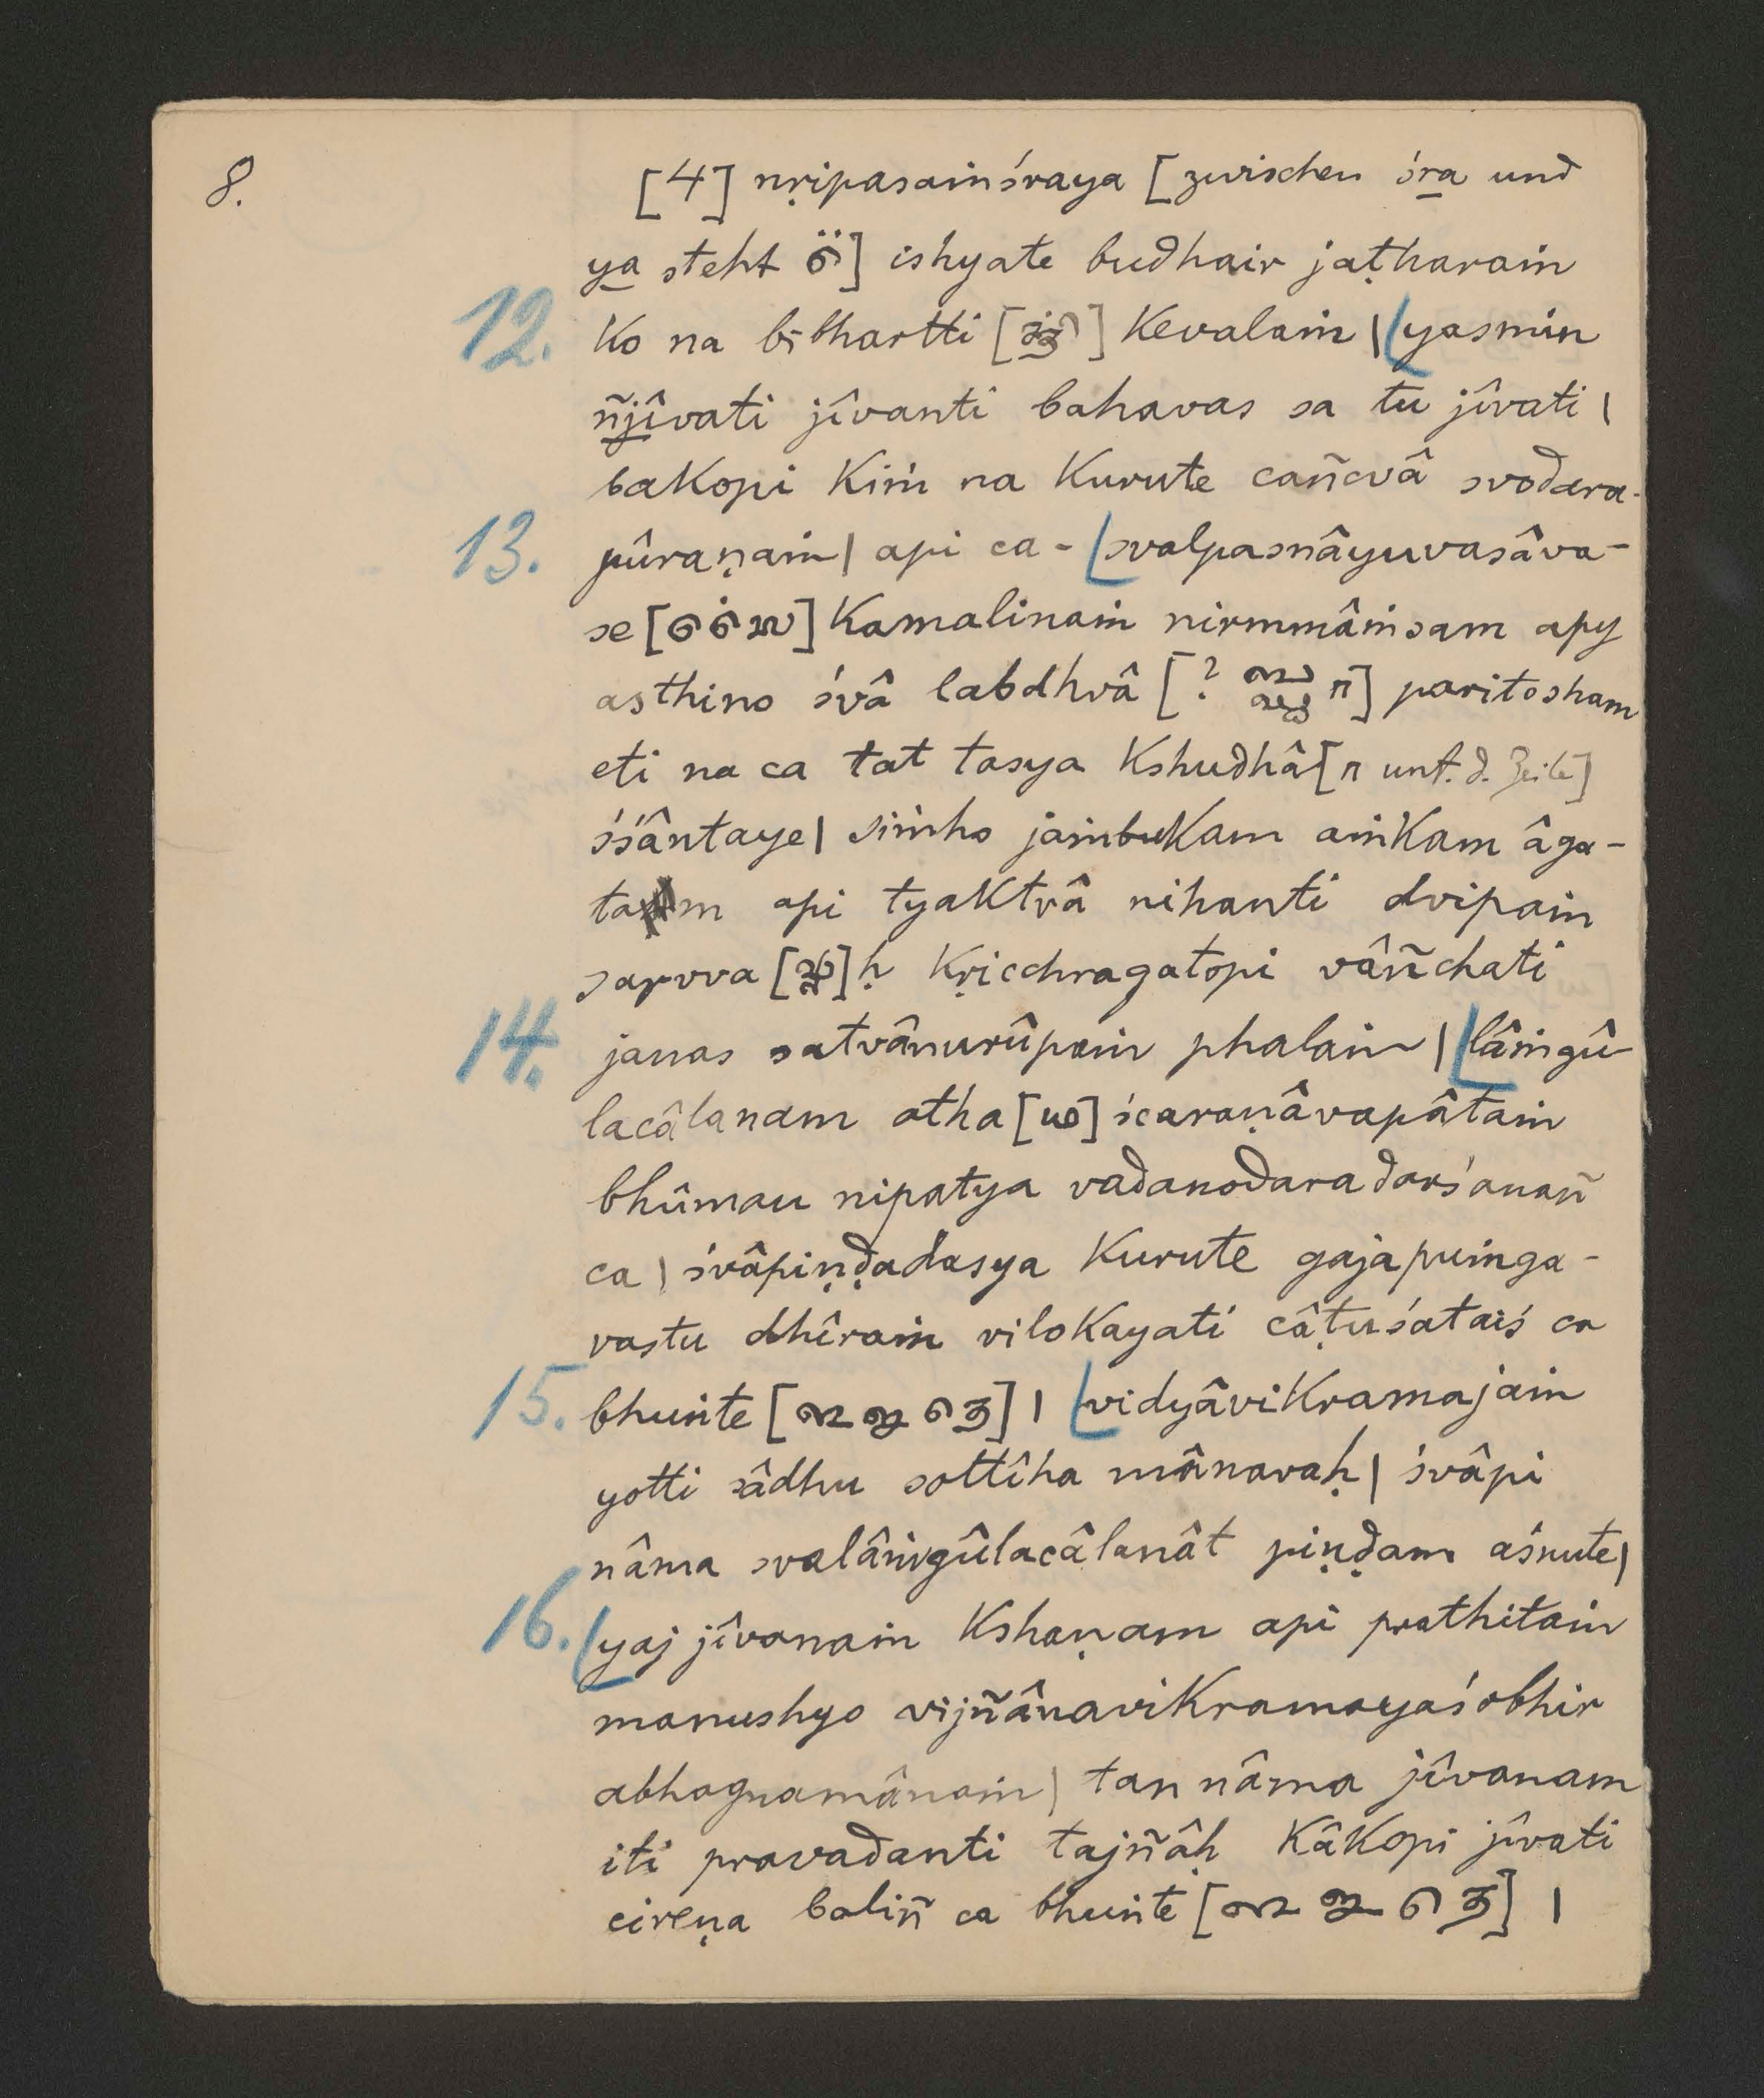 8.
[4] nṛipasaṁśraya [zwischen śra und
ya steht ] ishyate budhair jaṭharaṁ
12. ko na bibhartti [] kevalaṁ | yasmin
ñjîvati jîvanti bahavas sa tu jîvati |
bakopi kiṁ na kurute cañcvâ svodara-
13. pûraṇaṁ | api ca - svalpasnâyuvasâva-
se [] kamalinaṁ nirmmâṁsam apy
asthino śvâ labdhvâ [? ] paritosham
eti na ca tat tasya kshudhâ [ unt. d. Zeile]
śśântaye | siṁho jaṁbukam aṁkam âga-
tam api tyaktvâ nihanti dvipaṁ
sarvva []ḥ kṛicchragatopi vâñchati
14. janas satvânurûpaṁ phalaṁ | lâṁgû-
lacâlanam atha [] ścaraṇâvapâtaṁ
bhûmau nipatya vadanodaradarśanañ
ca | śvâpiṇḍadasya kurute gajapuṁga-
vastu dhîraṁ vilokayati câṭuśataiś ca
15. bhuṅte [] | vidyâvikramajaṁ
yotti sâdhu sottîha mânavaḥ | śvâpi
nâma svalâṁgûlacâlanât piṇḍam aśnute |
16. yaj jîvanaṁ kshaṇam api prathitaṁ
manushyo vijñânavikramayaśobhir
abhagnamânaṁ | tan nâma jîvanam
iti pravadanti tajñâḥ kâkopi jîvati
cireṇa baliñ ca bhuṅte [] |